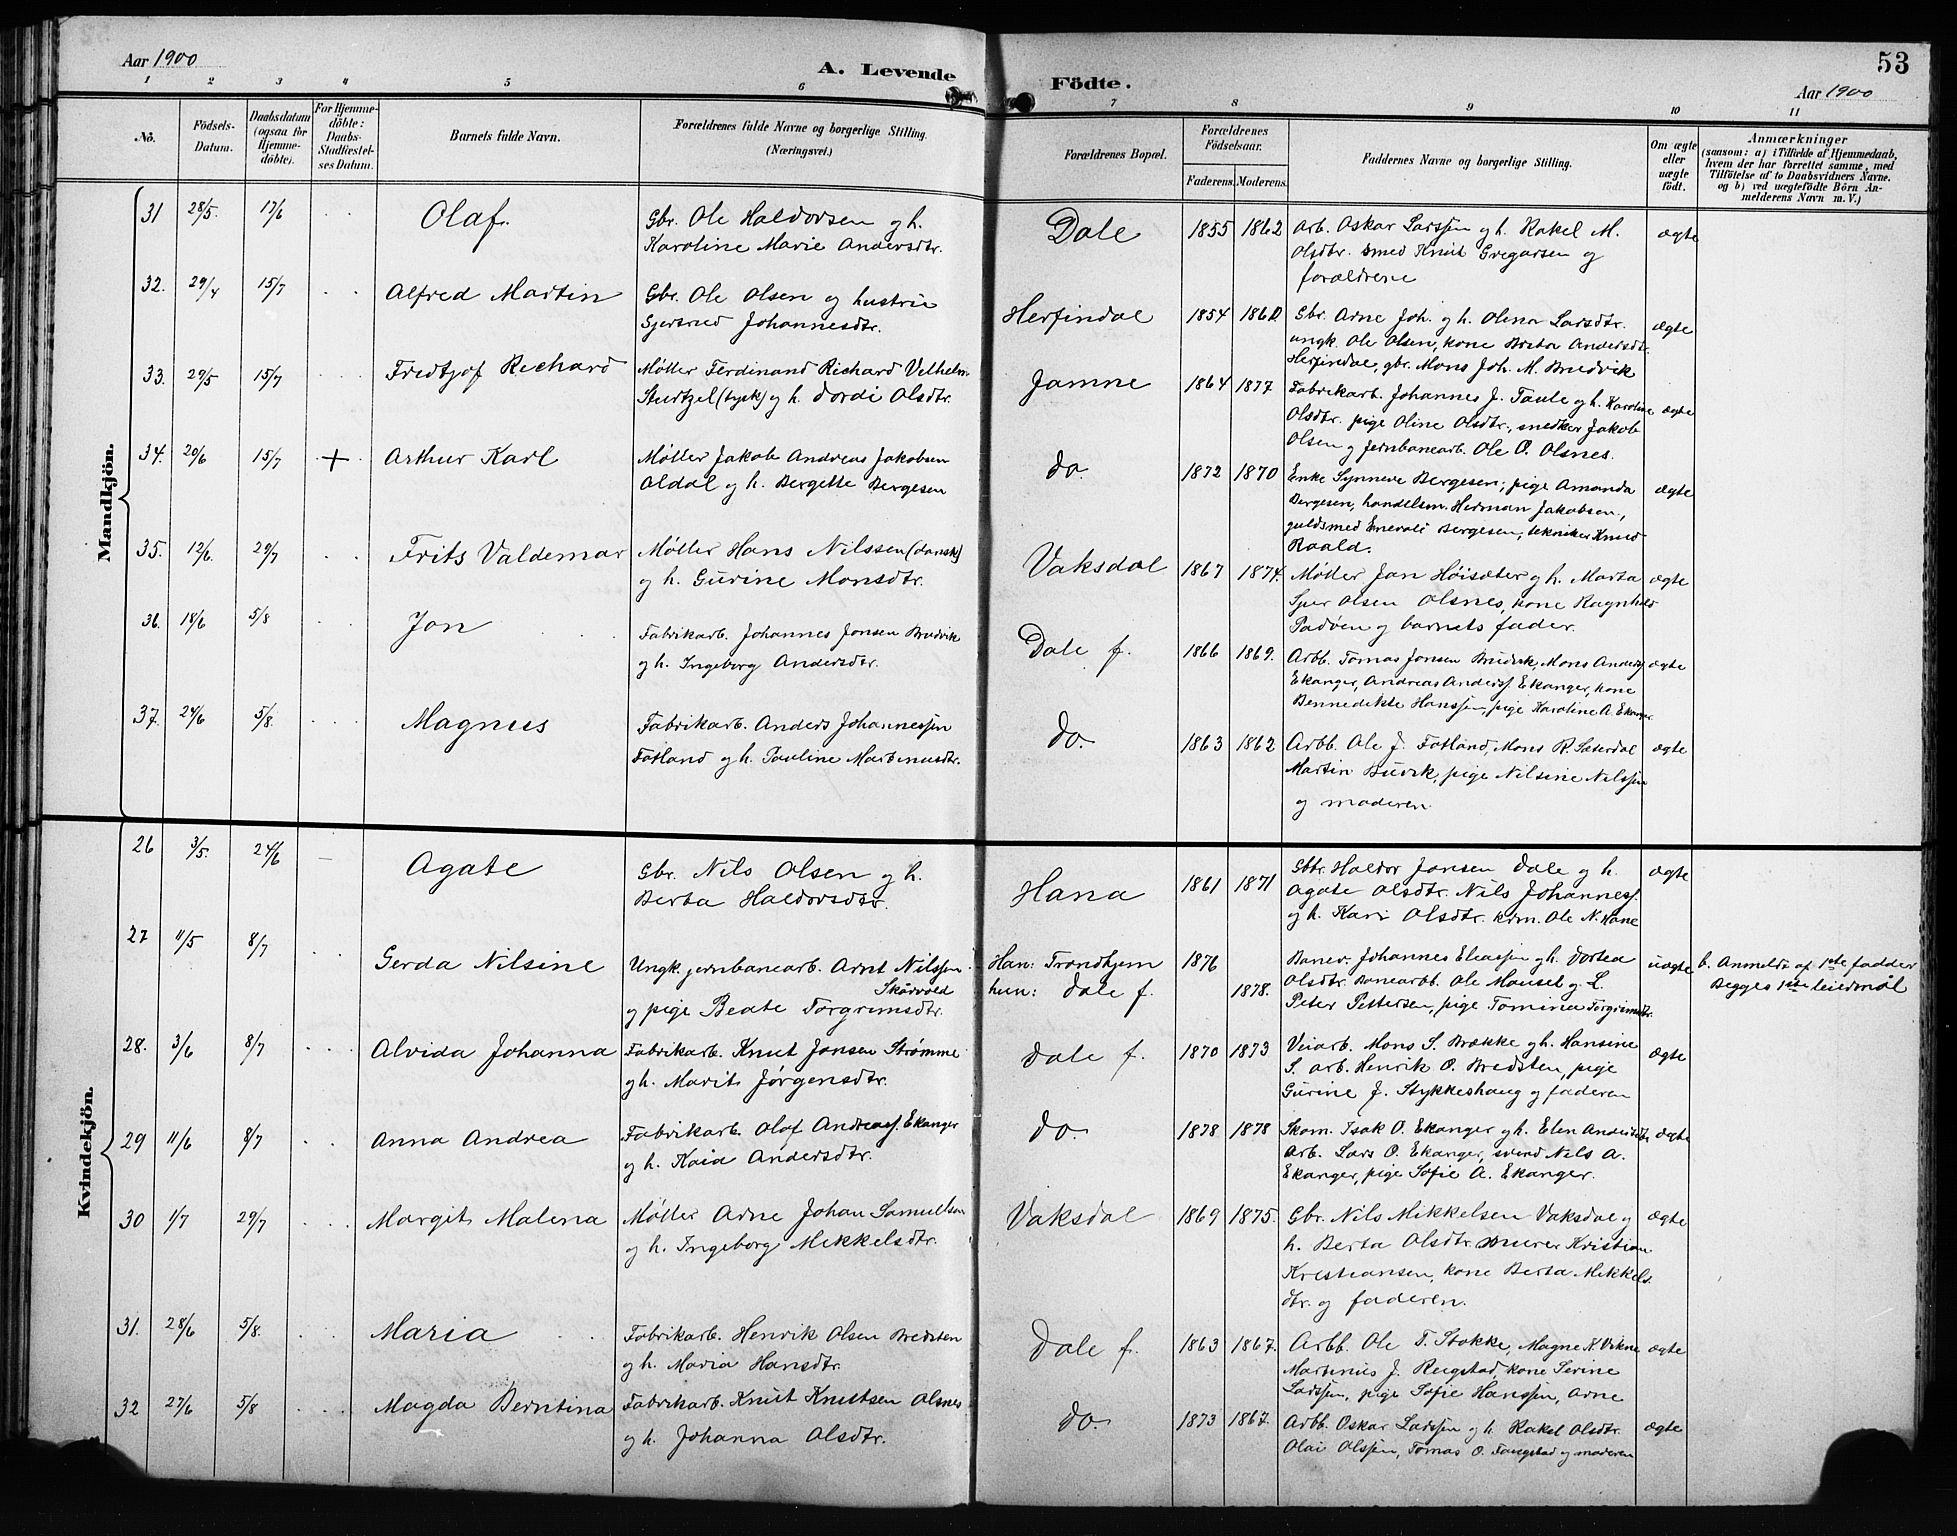 Aar 1900
A. Levende
Födte.
53
Aar 1900
1 2 3 4 5 6 7 8 9 10 11
No.
Födsels-Datum.
Daabsdatum (ogsaa för Hjemme-döbte).
For Hjemme-döbte: Daabs-Stadfæstel-ses Datum.
Barnets fulde Navn.
Forældrenes fulde Navne og borgerlige Stilling.
(Næringsvei.)
Forældrenes Bopæl.
Forældrenes Födselsaar.
Faderens. Moderens.
Faddernes Navne og borgerlige Stilling.
Om ægte eller uægte födt.
Anmærkninger
(saasom: a) i Tilfælde af Hjemmedaab, hvem der har forrettet samme, med Tilföielse af to Daabsvidners Navne. og b) ved uægtefödte Börn An-melderens Navn m. V.)
Mandkjön.
31 28/5. 17/6 Olaf.
Gbr. Ole Haldorsen og h.
Karoline Marie Andersdtr.
Dale 1855 1862
Arb. Oskar Larssen og h. Rakel M.
Olsdtr. smed Knut Gregarsen og
forældrene
ægte
32. 29/4 15/7 Alfred Martin
Gbr. Ole Olsen og hustru
Gjertrud Johannesdtr.
Herfindal 1854 1860
Gbr. Arne Joh. og h. Olina Larsdtr.
ungk. Ole Olsen, kone Brita Andersdtr.
Herfindal, gbr. Mons Joh. M. Brudvik
ægte
33. 29/5 15/7 Fredtjof Richard
Møller Ferdinand Richard Vilhelm
Sturtzel (tysk) og h. Dordi Olsdtr.
Jamne 1864 1877
Fabrikarb. Johannes J. Taule og h. Karoline
Olsdtr. pige Oline Olsdtr., snedker Jakob
Olsen og jernbanearb. Ole O. Olsnes.
ægte
34. 20/6 15/7 + Arthur Karl
Møller Jakob Andreas Jakobsen
Aldal og h. Bergette Bergesen
do. 1872 1870
Enke Synneve Bergesen, pige Amanda
Bergesen, handelsm. Herman Jakobsen,
guldsmed Bergesen, tekniker Knud
Raald.
ægte
35. 12/6. 29/7 Frits Valdemar
Møller Hans Nilssen (dansk)
og h. Gurine Monsdtr.
Vaksdal 1867 1874.
Møller Jan Høisæter og h. Marta
Olsen Olsnes, kone Ragnhild
og barnets fader.
ægte
36. 18/6 5/8 Jon
Fabrikarb. Johannes Jonsen Brudvik
og h. Ingeborg Andersdtr.
Dale f. 1866 1869.
Arbb. Tomas Jonsen Brudvik, Mons Anders
Ekanger, Andreas Anders. Ekanger, kone
Bennedikte Hanssen, pige Karoline A. Ekanger
ægte
37. 24/6 5/8. Magnus
Fabrikarb. Anders Johannessen
Fotland og h. Pauline Martinusdtr.
do. 1863 1862
Arbb. Ole J. Fotland, Mons R. Sæterdal
Martin Buvik, pige Nilsine Nilssen
og moderen.
ægte
Kvindekjön.
26 3/5. 24/6 Agate
Gbr. Nils Olsen og h.
Berta Haldorsdtr.
Hana 1861 1871
Gbr. Haldor Jansen Dale og h.
Agate Olsdtr. Nils Johannes.
og h. Kari Olsdtr. Ole N. Hane
ægte
27 11/5 8/7 Gerda Nilsine
Ungk. jernbanearb. Arnt Nilssen
Skårvold
og pige Beate Torgrimsdtr.
Han: Trondhjem
hun: Dale f.
1876 1878.
Banev. Johannes Eleassen og h. Dortea
Olsdtr. Banearbb. Ole Monsel og L.
Peter Pettersen, pige Tomina Torgrimsdtr.
uægte
b. Anmeldt af 1ste fadder
Begges 1ste leiermål
28. 3/6 8/7 Alvida Johanna
Fabrikarb. Knut Jonsen Strømme
og h. Marit Jørgensdtr.
Dale f. 1870 1873
Veiarb. Mons S. Brække og h. Hansine
S. arb. Henrik O. Bredsten, pige
Gurine J. Stykkeshaug og faderen
ægte
29 11/6 8/7 Anna Andrea
Fabrikarb. Olaf Andreas. Ekanger
og h. Kaia Andersdtr.
do. 1878 1878
Skom. Isak O. Ekanger og h. Elen Andersdtr.
Arb. Lars O. Ekanger, svend Nils A.
Ekanger, pige Sofie A. Ekanger.
ægte
30 1/7 29/7 Margit Malena
Møller Arne Johan Samuelsen
og h. Ingeborg Mikkelsdtr.
Vaksdal 1869 1875.
Gbr. Nils Mikkelsen Vaksdal og
h. Berta Olsdtr. murer Kristian
Kristiansen, kone Berta Mikkels
dtr. og faderen.
ægte
31. 28/6 5/8. Maria
Fabrikarb. Henrik Olsen Bredsten
og h. Maria Hansdtr.
Dale f. 1863 1867.
Arbb. Ole T. Stokke, Magne K. Vikne
Martinus J. Rugstad, kone Serine
Larssen, pige Sofie Hanssen, Arne
ægte
32 27/6 5/8 Magda Berntina
Fabrikarb. Knut Knutsen Olsnes
og h. Johanna Olsdtr.
do. 1873 1867.
Arbb. Oskar Larssen og h. Rakel Olsdtr.
Olai Olssen, Tomas O. og moderen
ægte